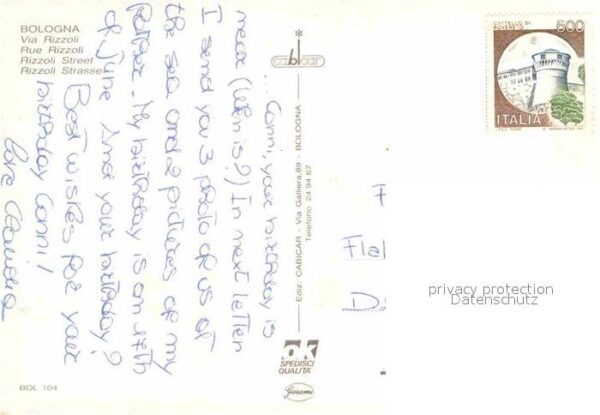 BOLOGNA
Via Rizzoli
Rue Rizzoli
Rizzoli Street
Rizzoli Strasse
... Conni, your birthday is
near (when is?) In next letter
I send you 3 photo of us at
the sea and 2 pictures of my
My birthday is on 17th
of June. And your birthday?
Best wishes for your
birthday Conni!
love Claudia
cabicar
Ediz. CABICAR - Via Galliera,89 - BOLOGNA
Telefono 24 94 67
ok
SPEDISCI
QUALITA'
Garami
BOL 104
CASTELLO DI
ROVERETO
600
ITALIA
F
Fla
D
privacy protection
Datenschutz